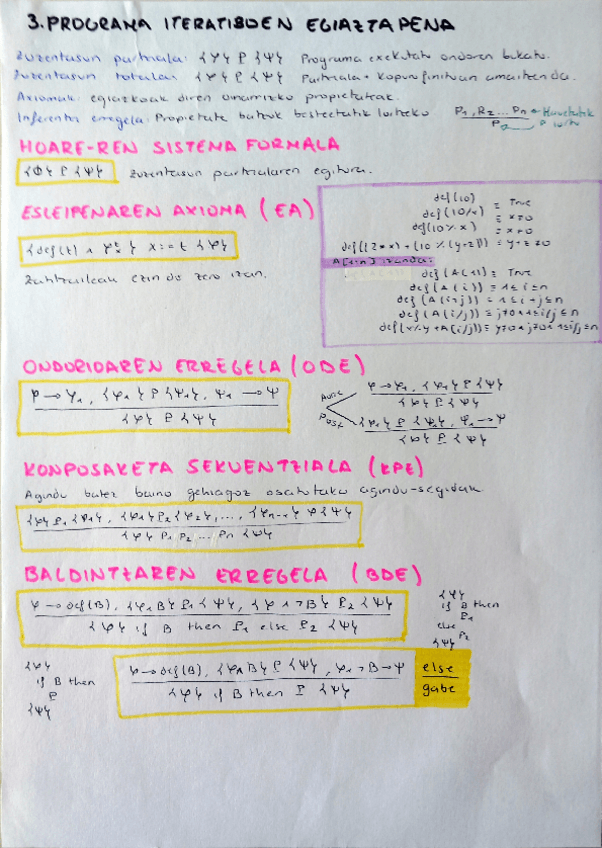 3. PROGRAMA ITERATIBOEN EGIAZTAPENA
Zuzentasun partziala: {φ} P {ψ} Programa exekutatu ondoren bukatu.
Zuzentasun totala: {φ} P {ψ} Partziala + kopuru finituan amaitzen da.
Axiomak: egiazkoak diren oinarrizko propietateak.
Inferentzi erregela: Propietate batzuk besteetatik lortzeko P1, P2 ... Pn ← Hauetatik
P P lortu
HOARE-REN SISTEMA FORMALA
{φ} P {ψ} Zuzentasun partzialaren egitura.
ESLEIPENAREN AXIOMA (EA)
{def(t) ∧ φ t x} x:=t {φ}
Zatitzaileak ezin du zero izan.
def(10) ≡ True
def(10/x) ≡ x≠0
def(10% x) ≡ x≠0
def((2*x)+(10%(y+2))) ≡ y+z≠0
A[1..n] izanda:
def(A(1)) ≡ True
def(A(i)) ≡ 1≤i≤n
def(A(i+j)) ≡ 1≤i+j≤n
def(A(i/j)) ≡ j≠0∧1≤i/j≤n
def(x%y+A(i/j)) ≡ y≠0∧j≠0∧1≤i/j≤n
ONDORIOAREN ERREGELA (ODE)
φ → φ1, {φ1} P {ψ1}, ψ1 → ψ
{φ} P {ψ}
Aurre φ → φ1, {φ1} P {ψ}
{φ} P {ψ}
Post {φ} P {ψ1}, ψ1 → ψ
{φ} P {ψ}
KONPOSAKETA SEKUENTZIALA (KPE)
Agindu batez baino gehiagoz osatutako agindu-segidak
{φ} P1 {φ1}, {φ1} P2 {φ2}, ..., {φn-1} P {ψ}
{φ} P1 P2 ... Pn {ψ}
BALDINTZAREN ERREGELA (BDE)
φ → def(B), {φ∧B} P1 {ψ}, {φ∧¬B} P2 {ψ}
{φ} if B then P1 else P2 {ψ}
{φ}
if B then
P1
else
P2
{ψ}
{φ}
if B then
P
{ψ}
φ → def(B), {φ∧B} P {ψ}, φ∧¬B → ψ
{φ} if B then P {ψ}
else
gabe